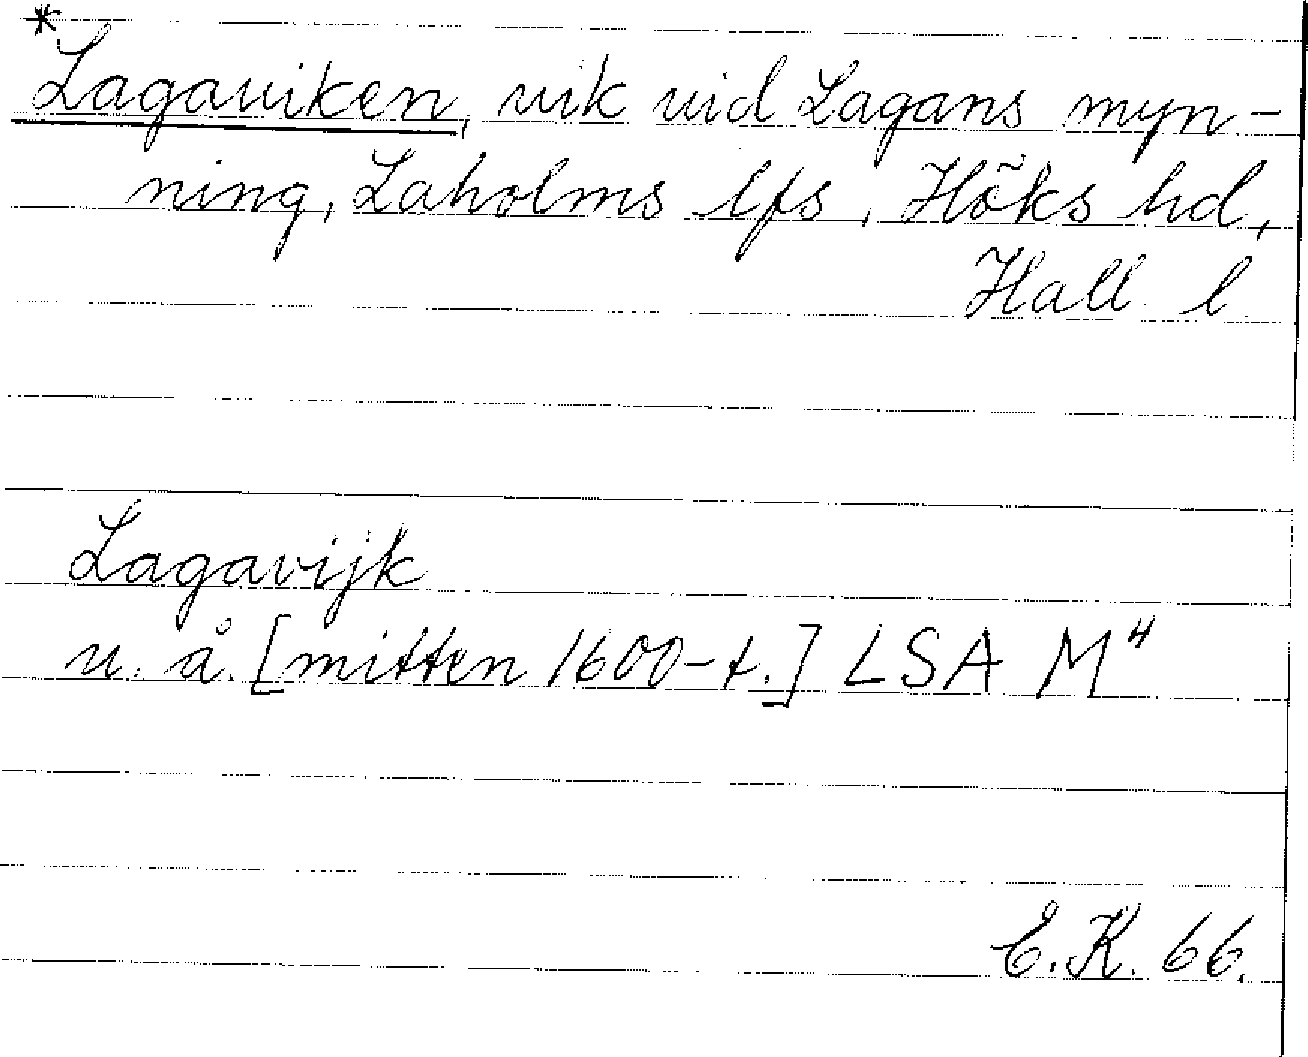 *
Lagaviken, vik vid Lagans myn-
ning, Laholms lfs, Höks hd,
Hall. l
Lagavijk
u. å. [mitten 1600-t.] LSA M4
E.K. 66.